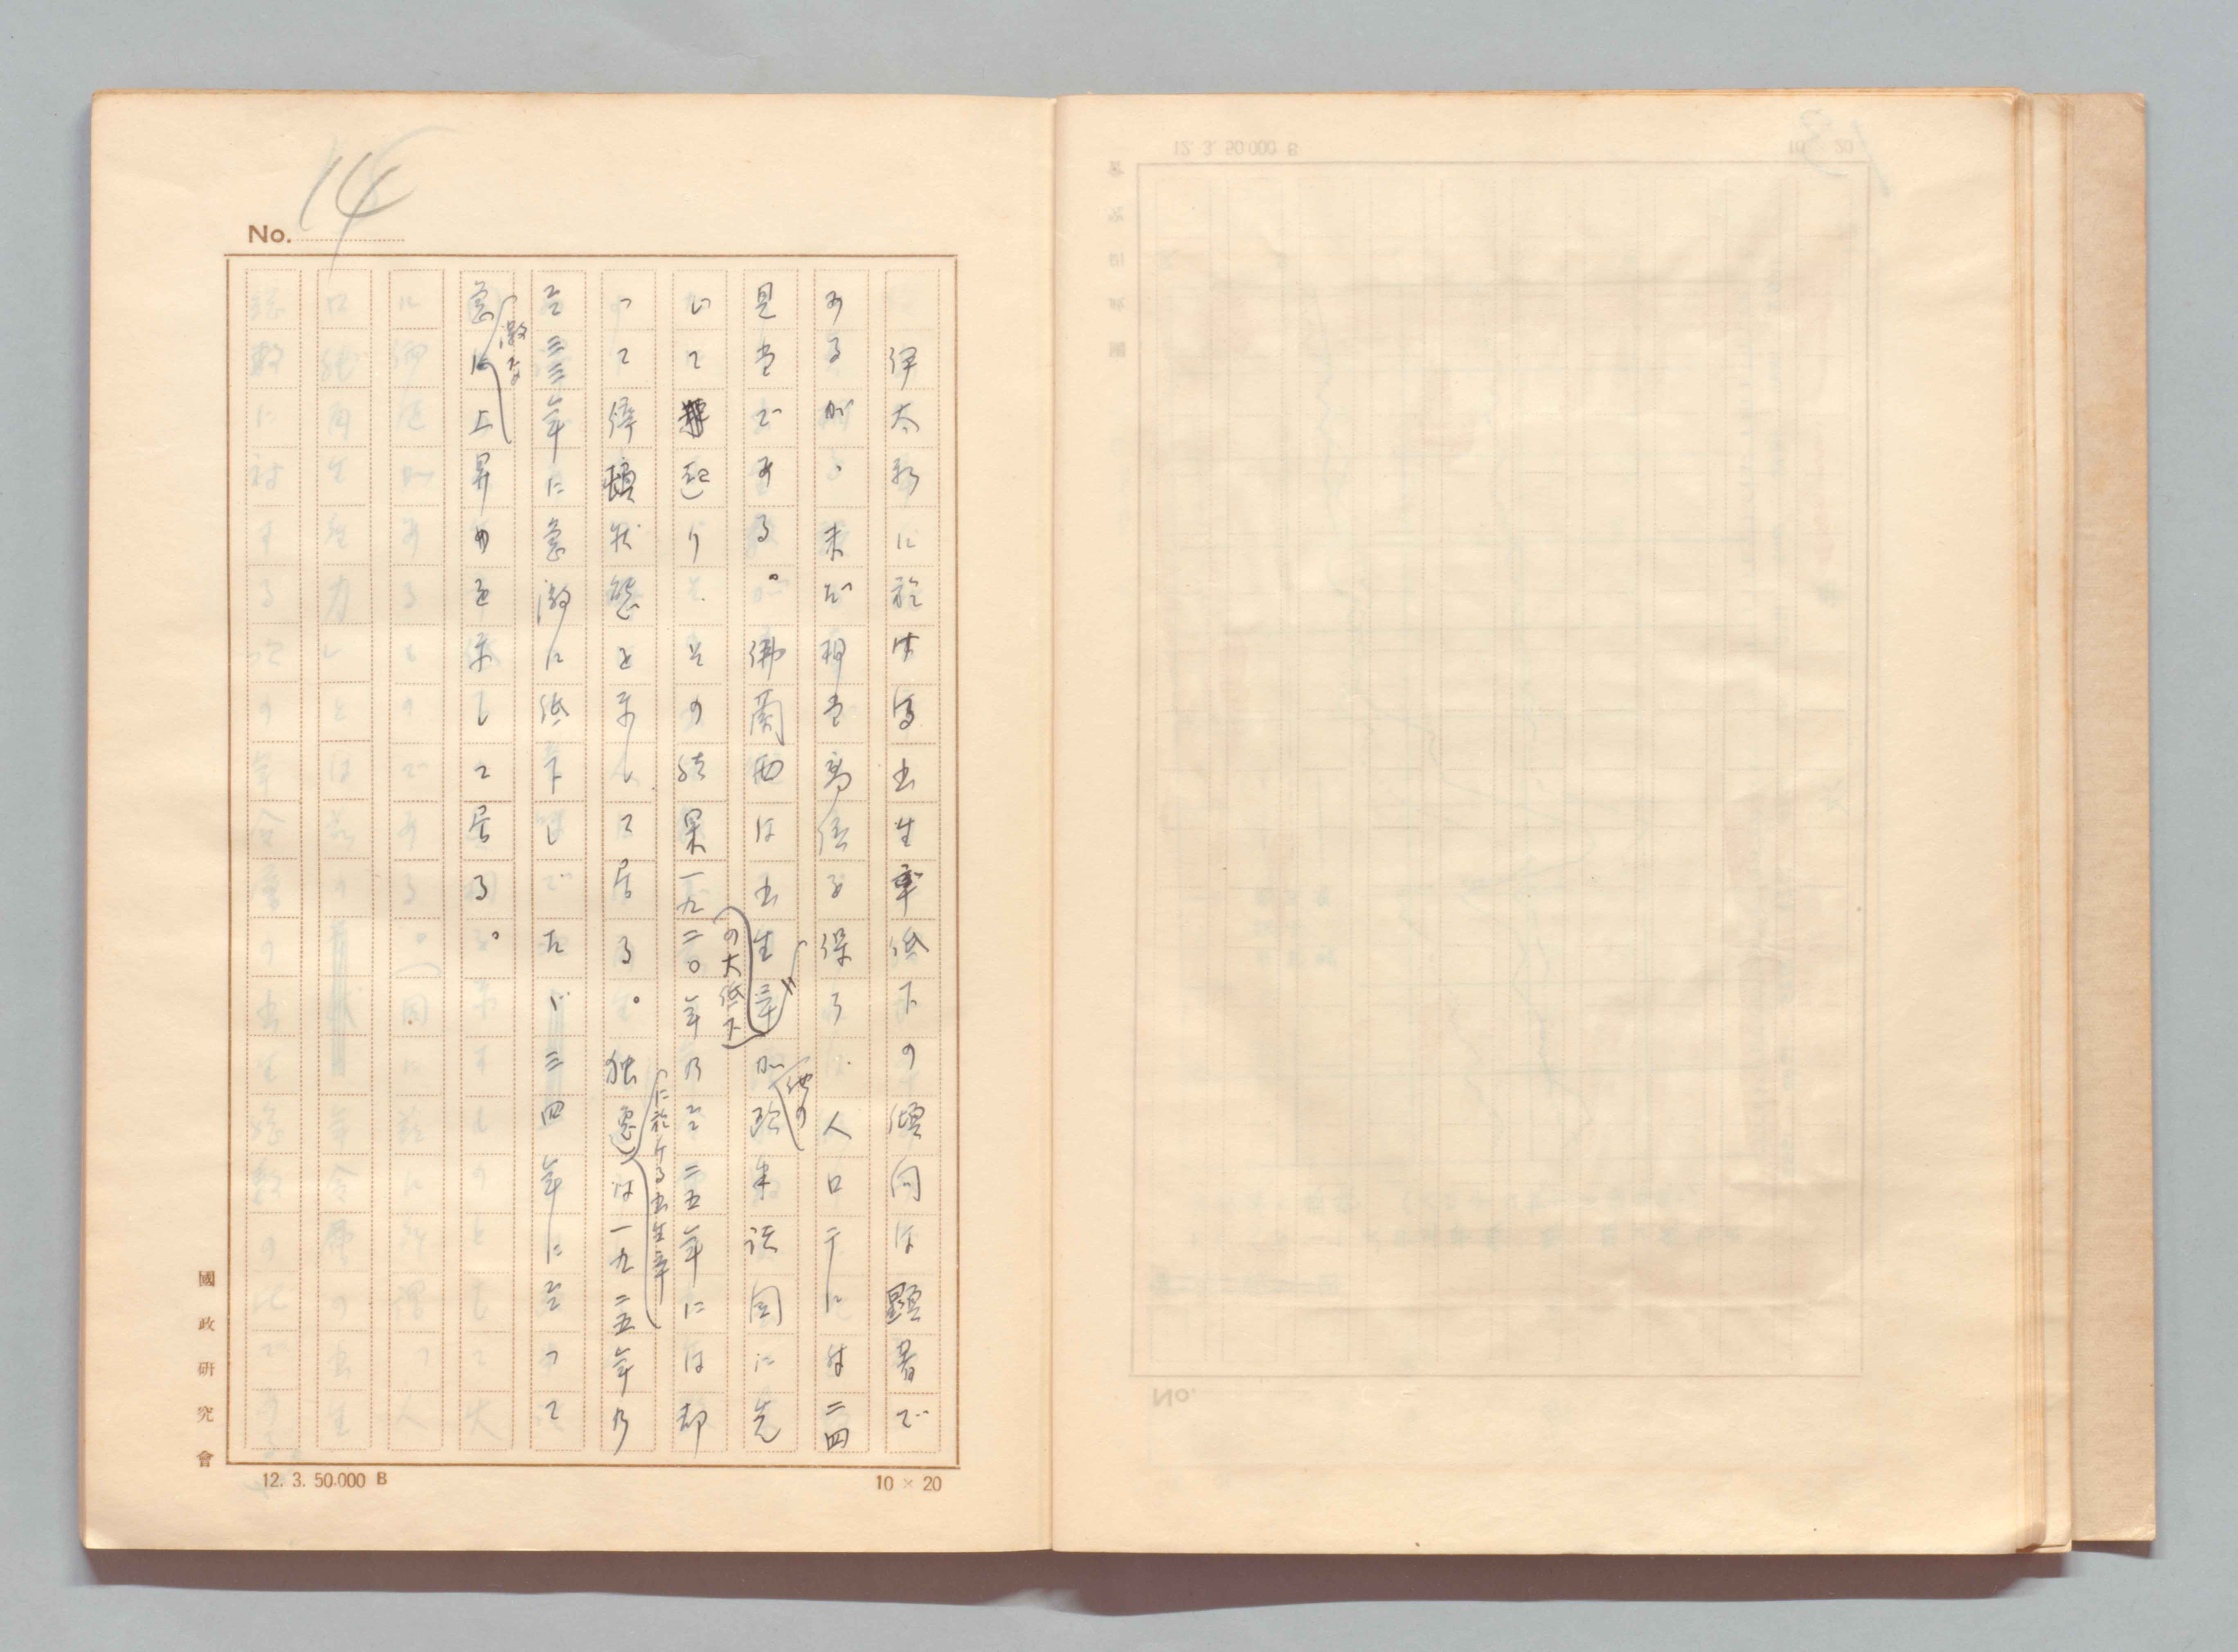 No. 14
伊太利に於ける出生率低下の傾向は顕著で
あるが、未だ相当高位を保ち、人口千に付二四
見当である。佛蘭西は出生率の大低下が他の欧米諸国に先
じて起り、其の結果一九二〇年乃至二五年には却
つて停頓状態を示して居る。独逸に於ける出生率は一九二五年乃
至三三年に急激に低下したが、三四年に至つて
急激な上昇を示して居る。
國政研究會
12. 3. 50.000 B
10 × 20